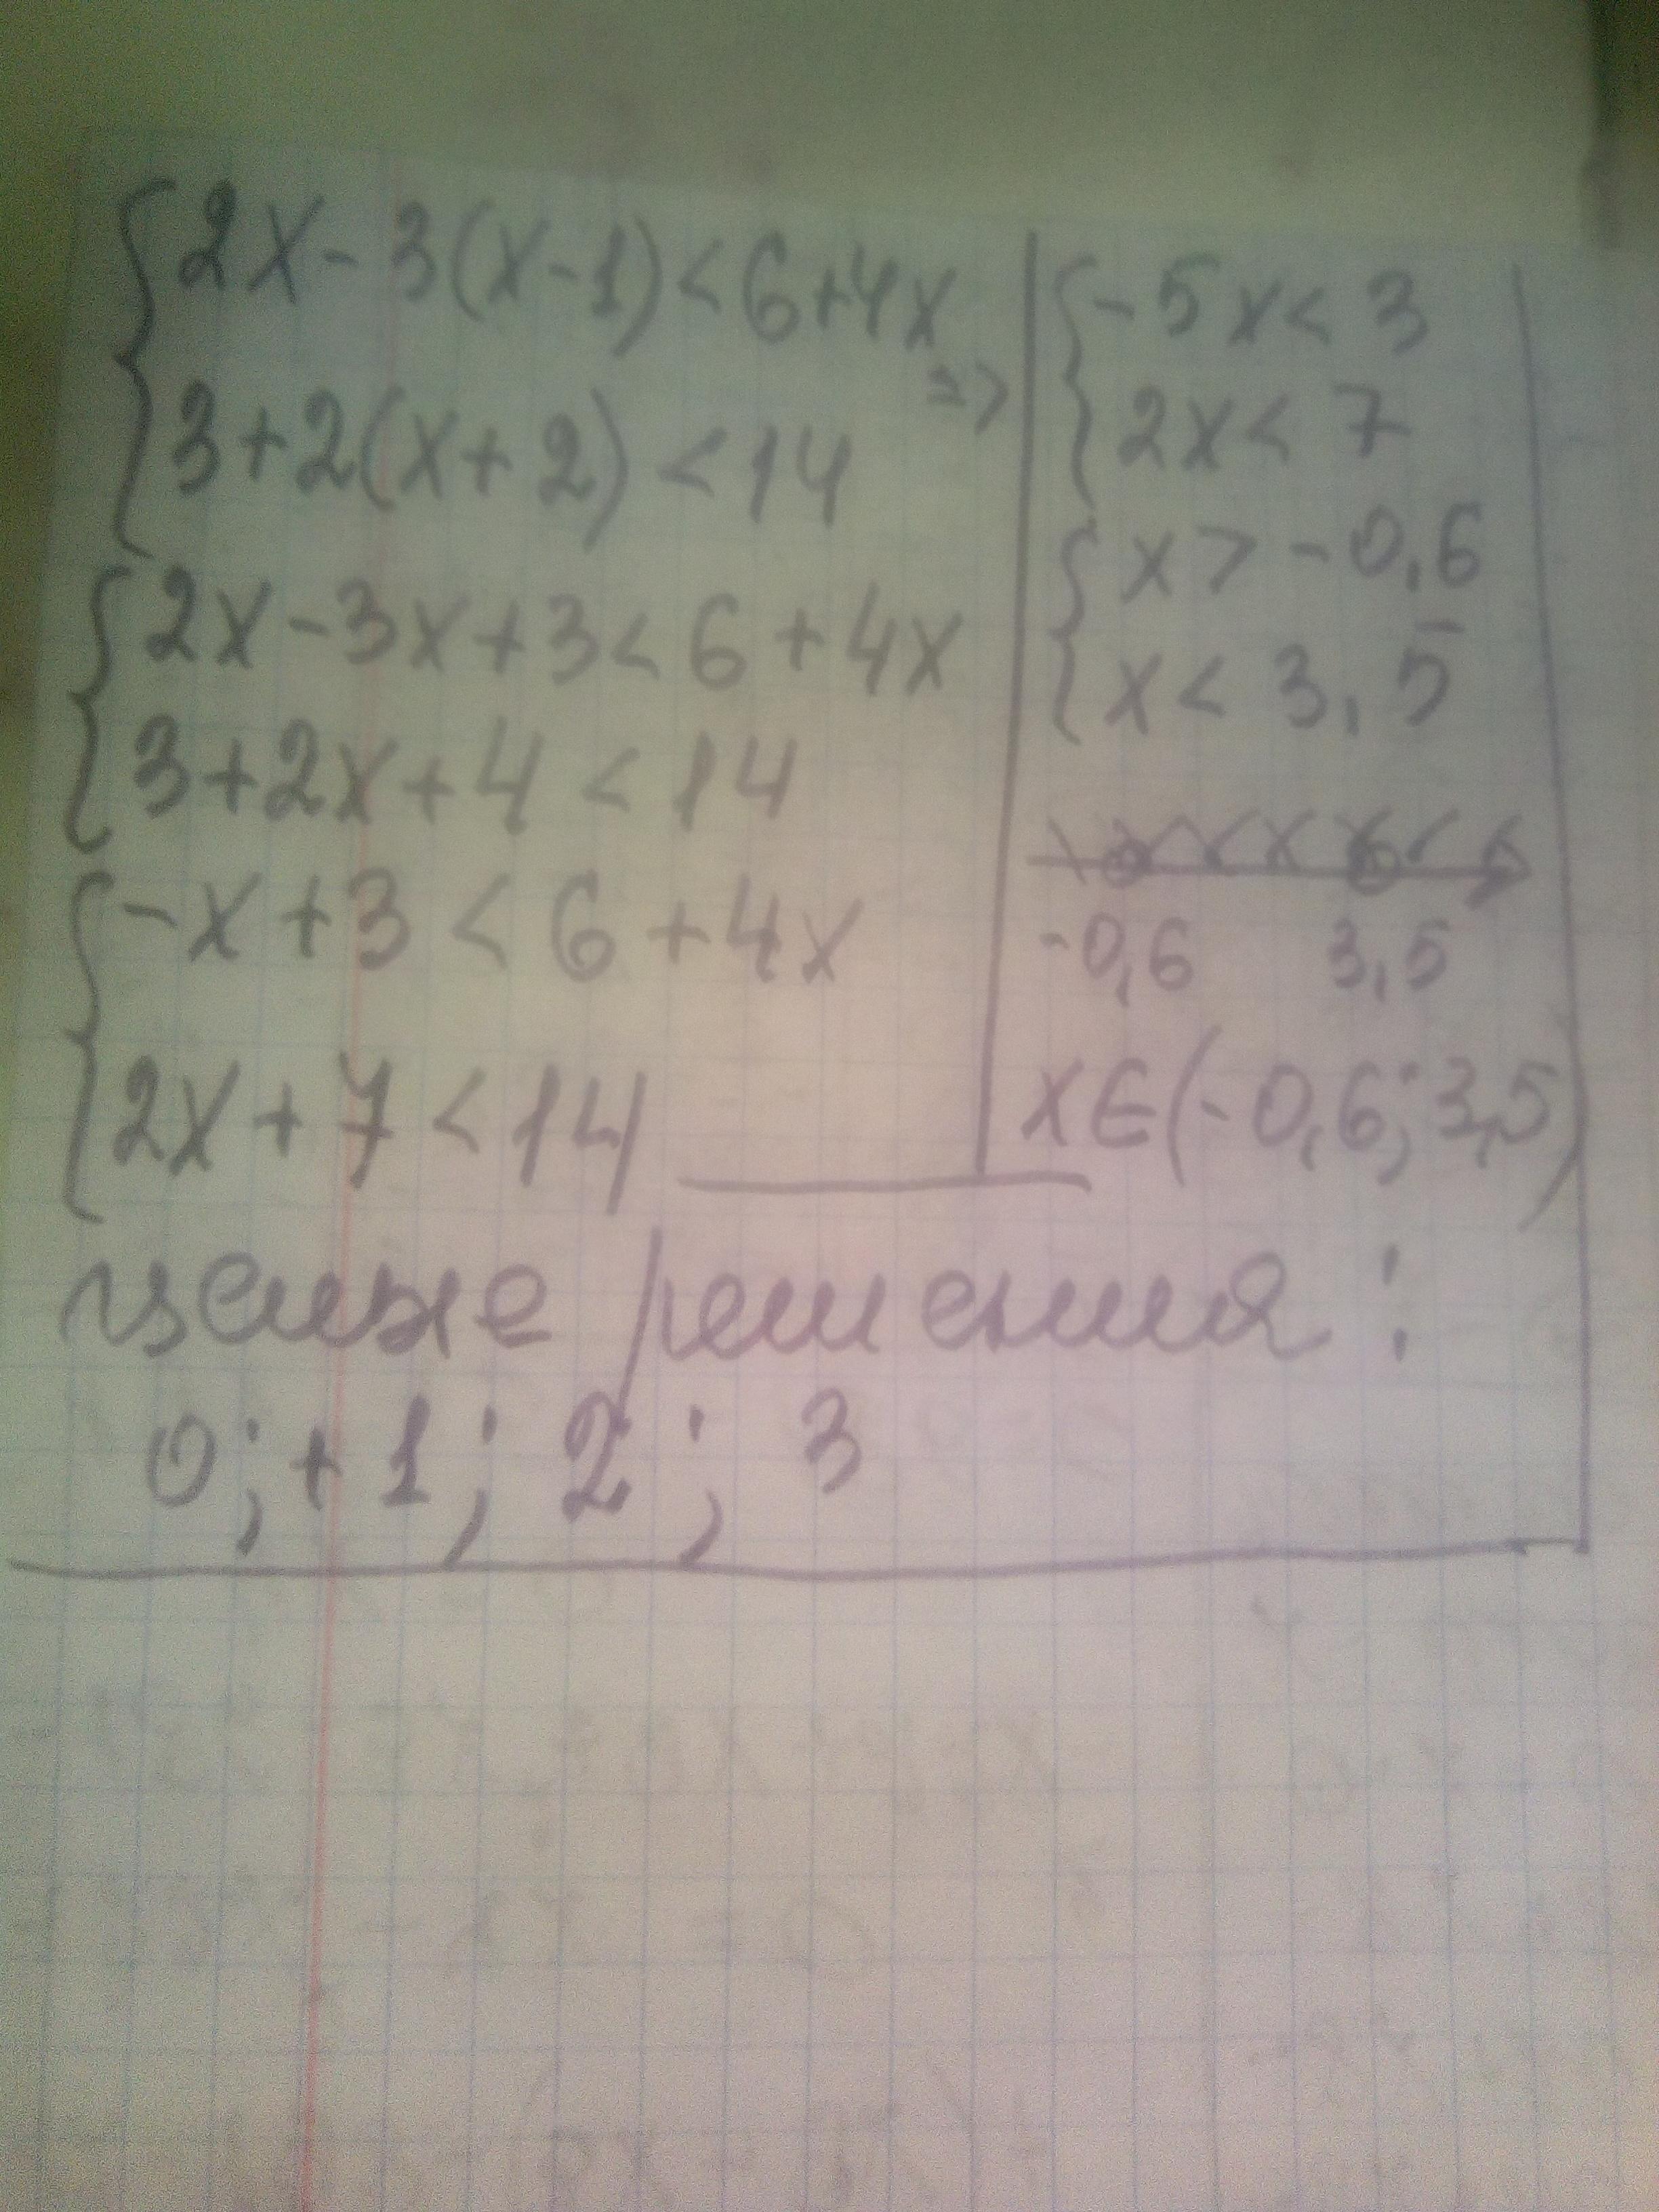 2x-3(x-1)<6+4x
3+2(x+2)<14
=>
2x-3x+3<6+4x
3+2x+4<14
-x+3<6+4x
2x+7<14
-5x<3
2x<7
x>-0,6
x<3,5
-0,6 3,5
x∈(-0,6;3,5)
целые решения:
0;+1;2;3